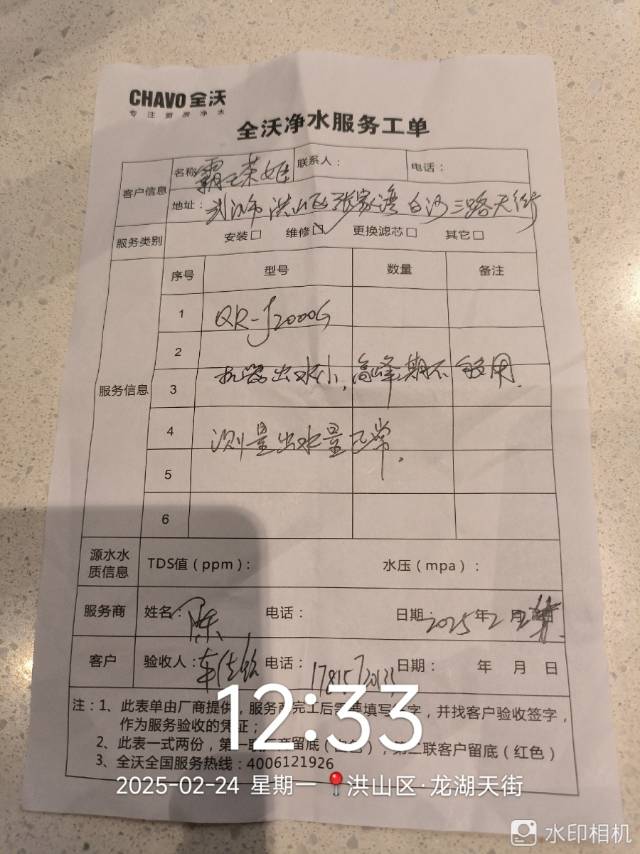 CHAVO 全沃
专注商用净水
全沃净水服务工单
客户信息 名称 霸王茶姬 联系人： 电话：
地址： 武汉市洪山区张家湾白沙三路天街
服务类别 安装☐ 维修☑ 更换滤芯☐ 其它☐
服务信息 序号 型号 数量 备注
1 QR-J2000G
2
3 机器出水小，高峰期不够用。
4 测量出水量正常。
5
6
源水水质信息 TDS值（ppm）： 水压（mpa）：
服务商 姓名： 陈 电话： 日期：2025年2月 日
客户 验收人： 电话： 日期： 年 月 日
注：1、此表单由厂商提供，服务 完工后 填写 字，并找客户验收签字，
作为服务验收的凭证；
2、此表一式两份，第一联 商留底 ，第二联客户留底（红色）
3、全沃全国服务热线：4006121926
12:33
2025-02-24 星期一 洪山区·龙湖天街
水印相机